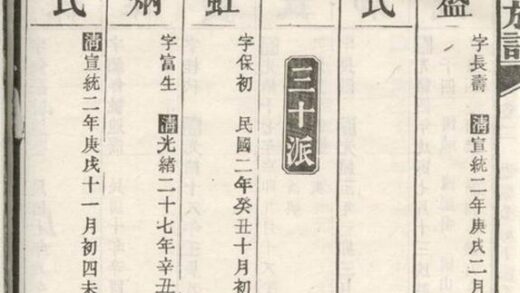 族譜
盛
字長壽 清宣統二年庚戌二月
氏
三十派
虹
字保初 民國二年癸丑十月初
炳
字富生 清光緒二十七年辛丑
氏
清宣統二年庚戌十一月初四未